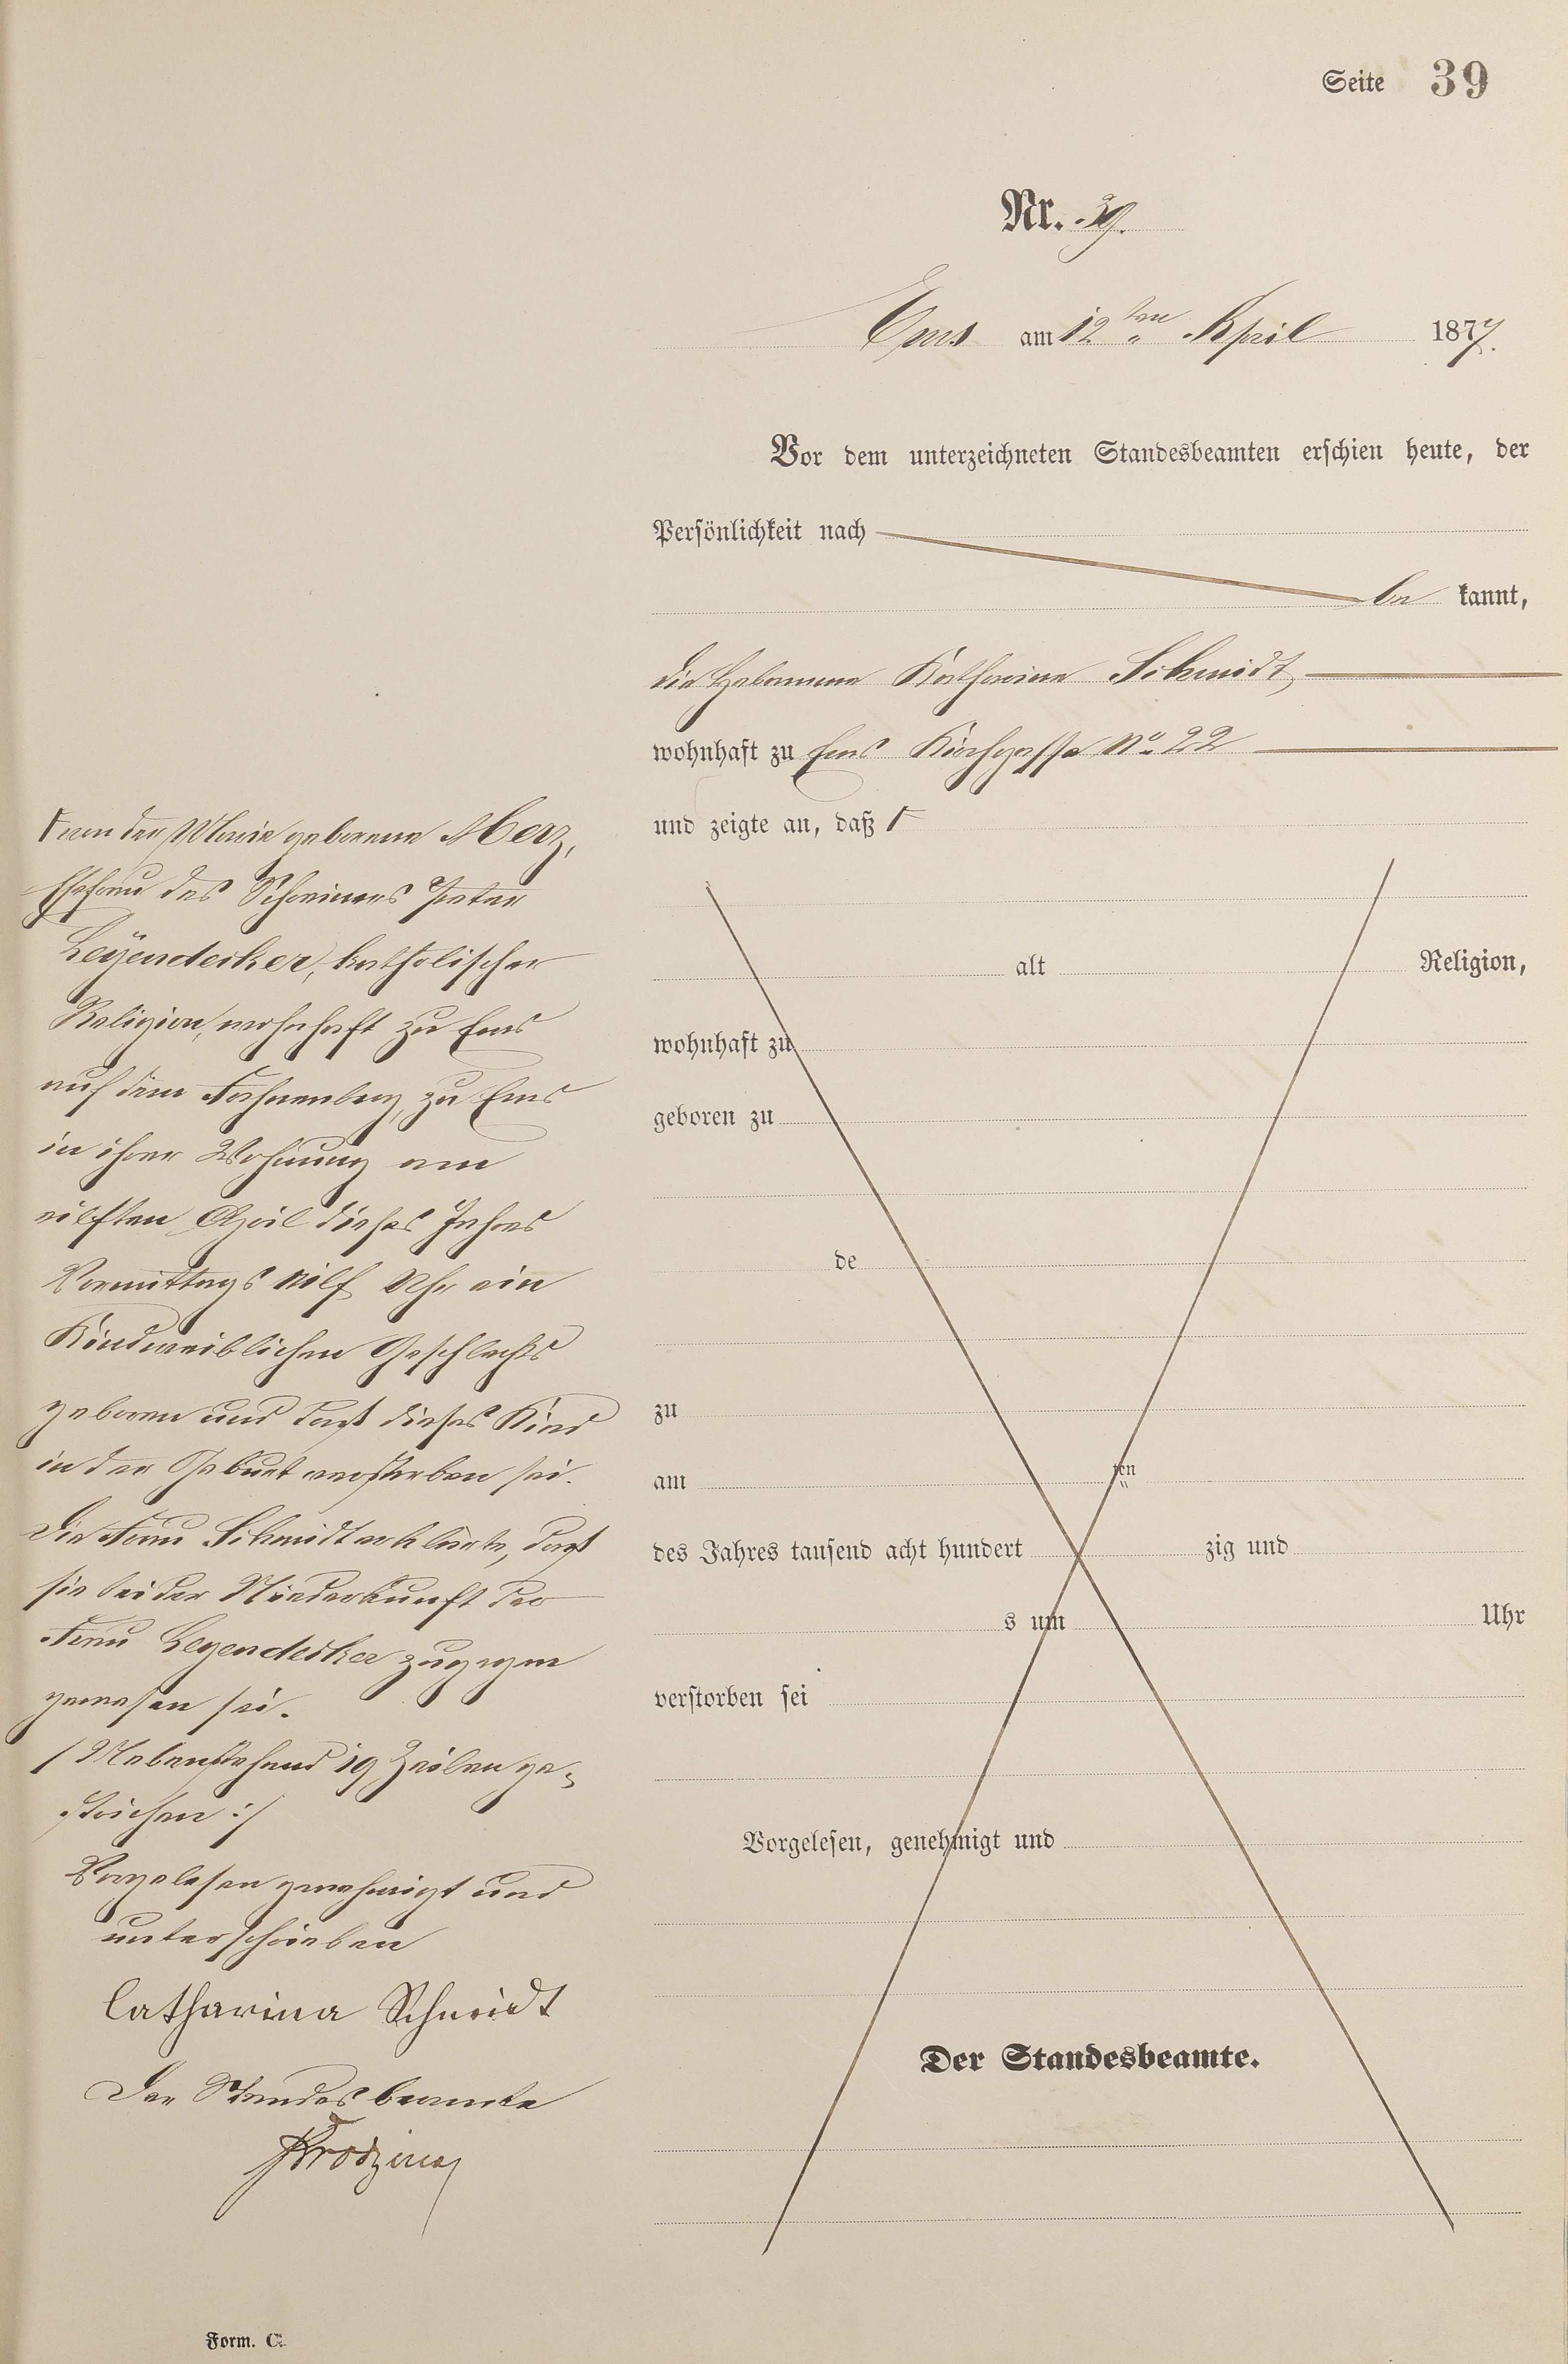 Seite 39
Nr. 39.
Ems am 12ten April 1877.
Vor dem unterzeichneten Standesbeamten erschien heute, der
Persönlichkeit nach
be kannt,
die Hebamme Katharina Schmidt,
wohnhaft zu Ems Kirchgasse No. 22
und zeigte an, daß Γ
Γ von der Marie geborene Merz,
Ehefrau des Schreiners Peter
Leÿendecker, katholischer
Religion, wohnhaft zu Ems
auf dem Fahnenberg, zu Ems
in ihrer Wohnung am
eilften April dieses Jahres
Vormittags eilf Uhr ein
Kind weiblichen Geschlechts
geboren und daß dieses Kind
in der Geburt verstorben sei.
Die Frau Schmidt erklärte, daß
sie bei der Niederkunft der
Frau Leyendecker zugegen
gewesen sei.
/ Nebenstehend 19 Zeilen ge-
strichen :/
Vorgelesen genehmigt und
unterschrieben
Catharina Schmidt
Der Standesbeamte
alt Religion,
wohnhaft zu
geboren zu
de
zu
am ten
des Jahres tausend acht hundert zig und
s um Uhr
verstorben sei
Vorgelesen, genehmigt und
Der Standesbeamte.
Form. C.